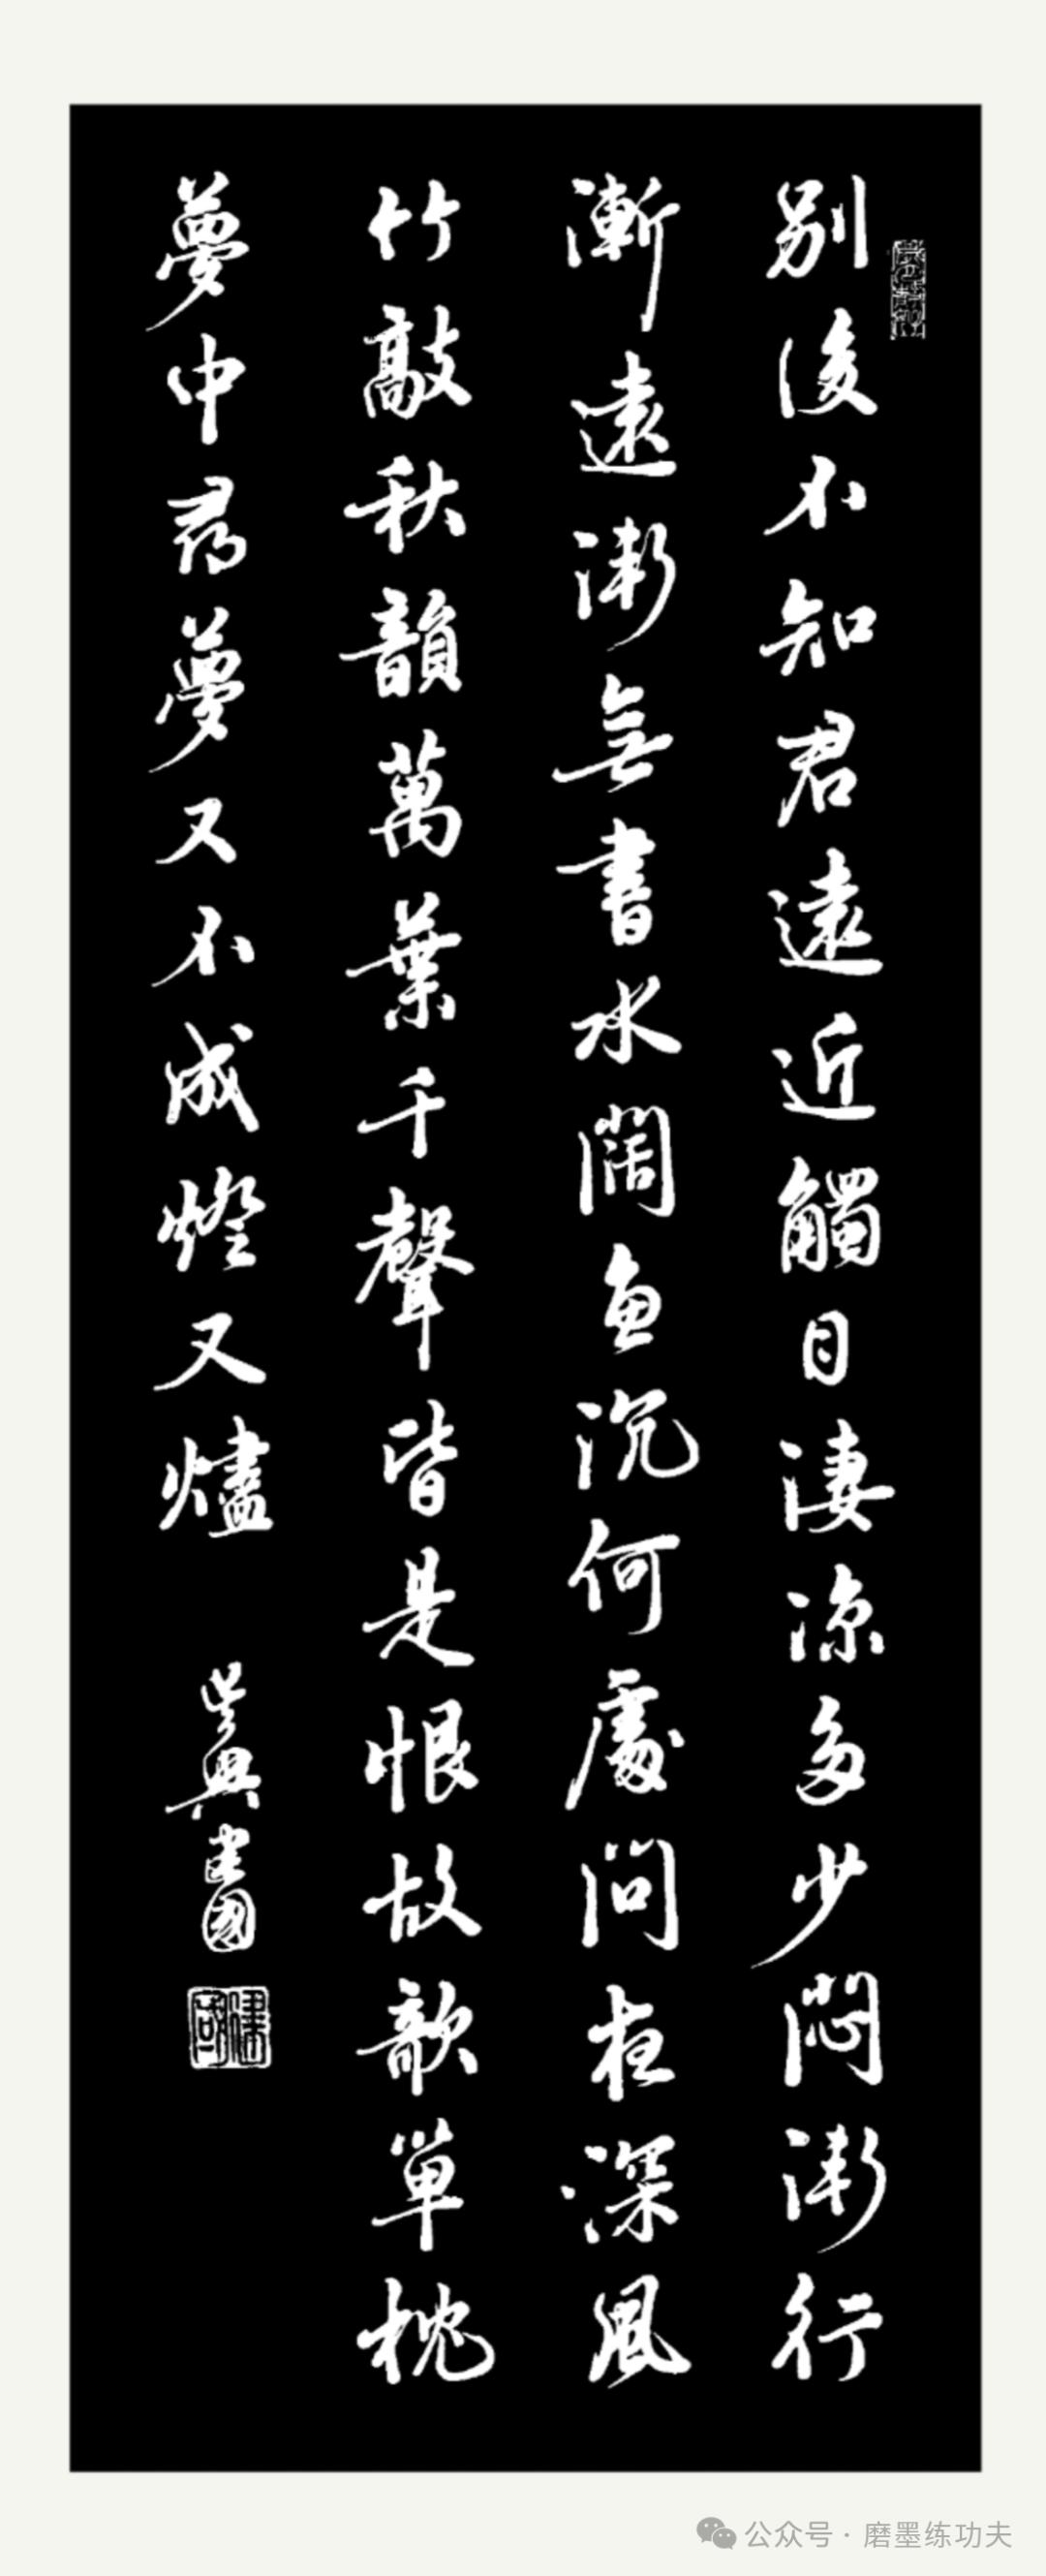 別後不知君遠近觸目淒涼多少悶漸行
漸遠漸無書水闊魚沉何處問夜深風
竹敲秋韻萬葉千聲皆是恨故欹單枕
夢中尋夢又不成燈又燼
吳興建國
建國
公众号 · 磨墨练功夫